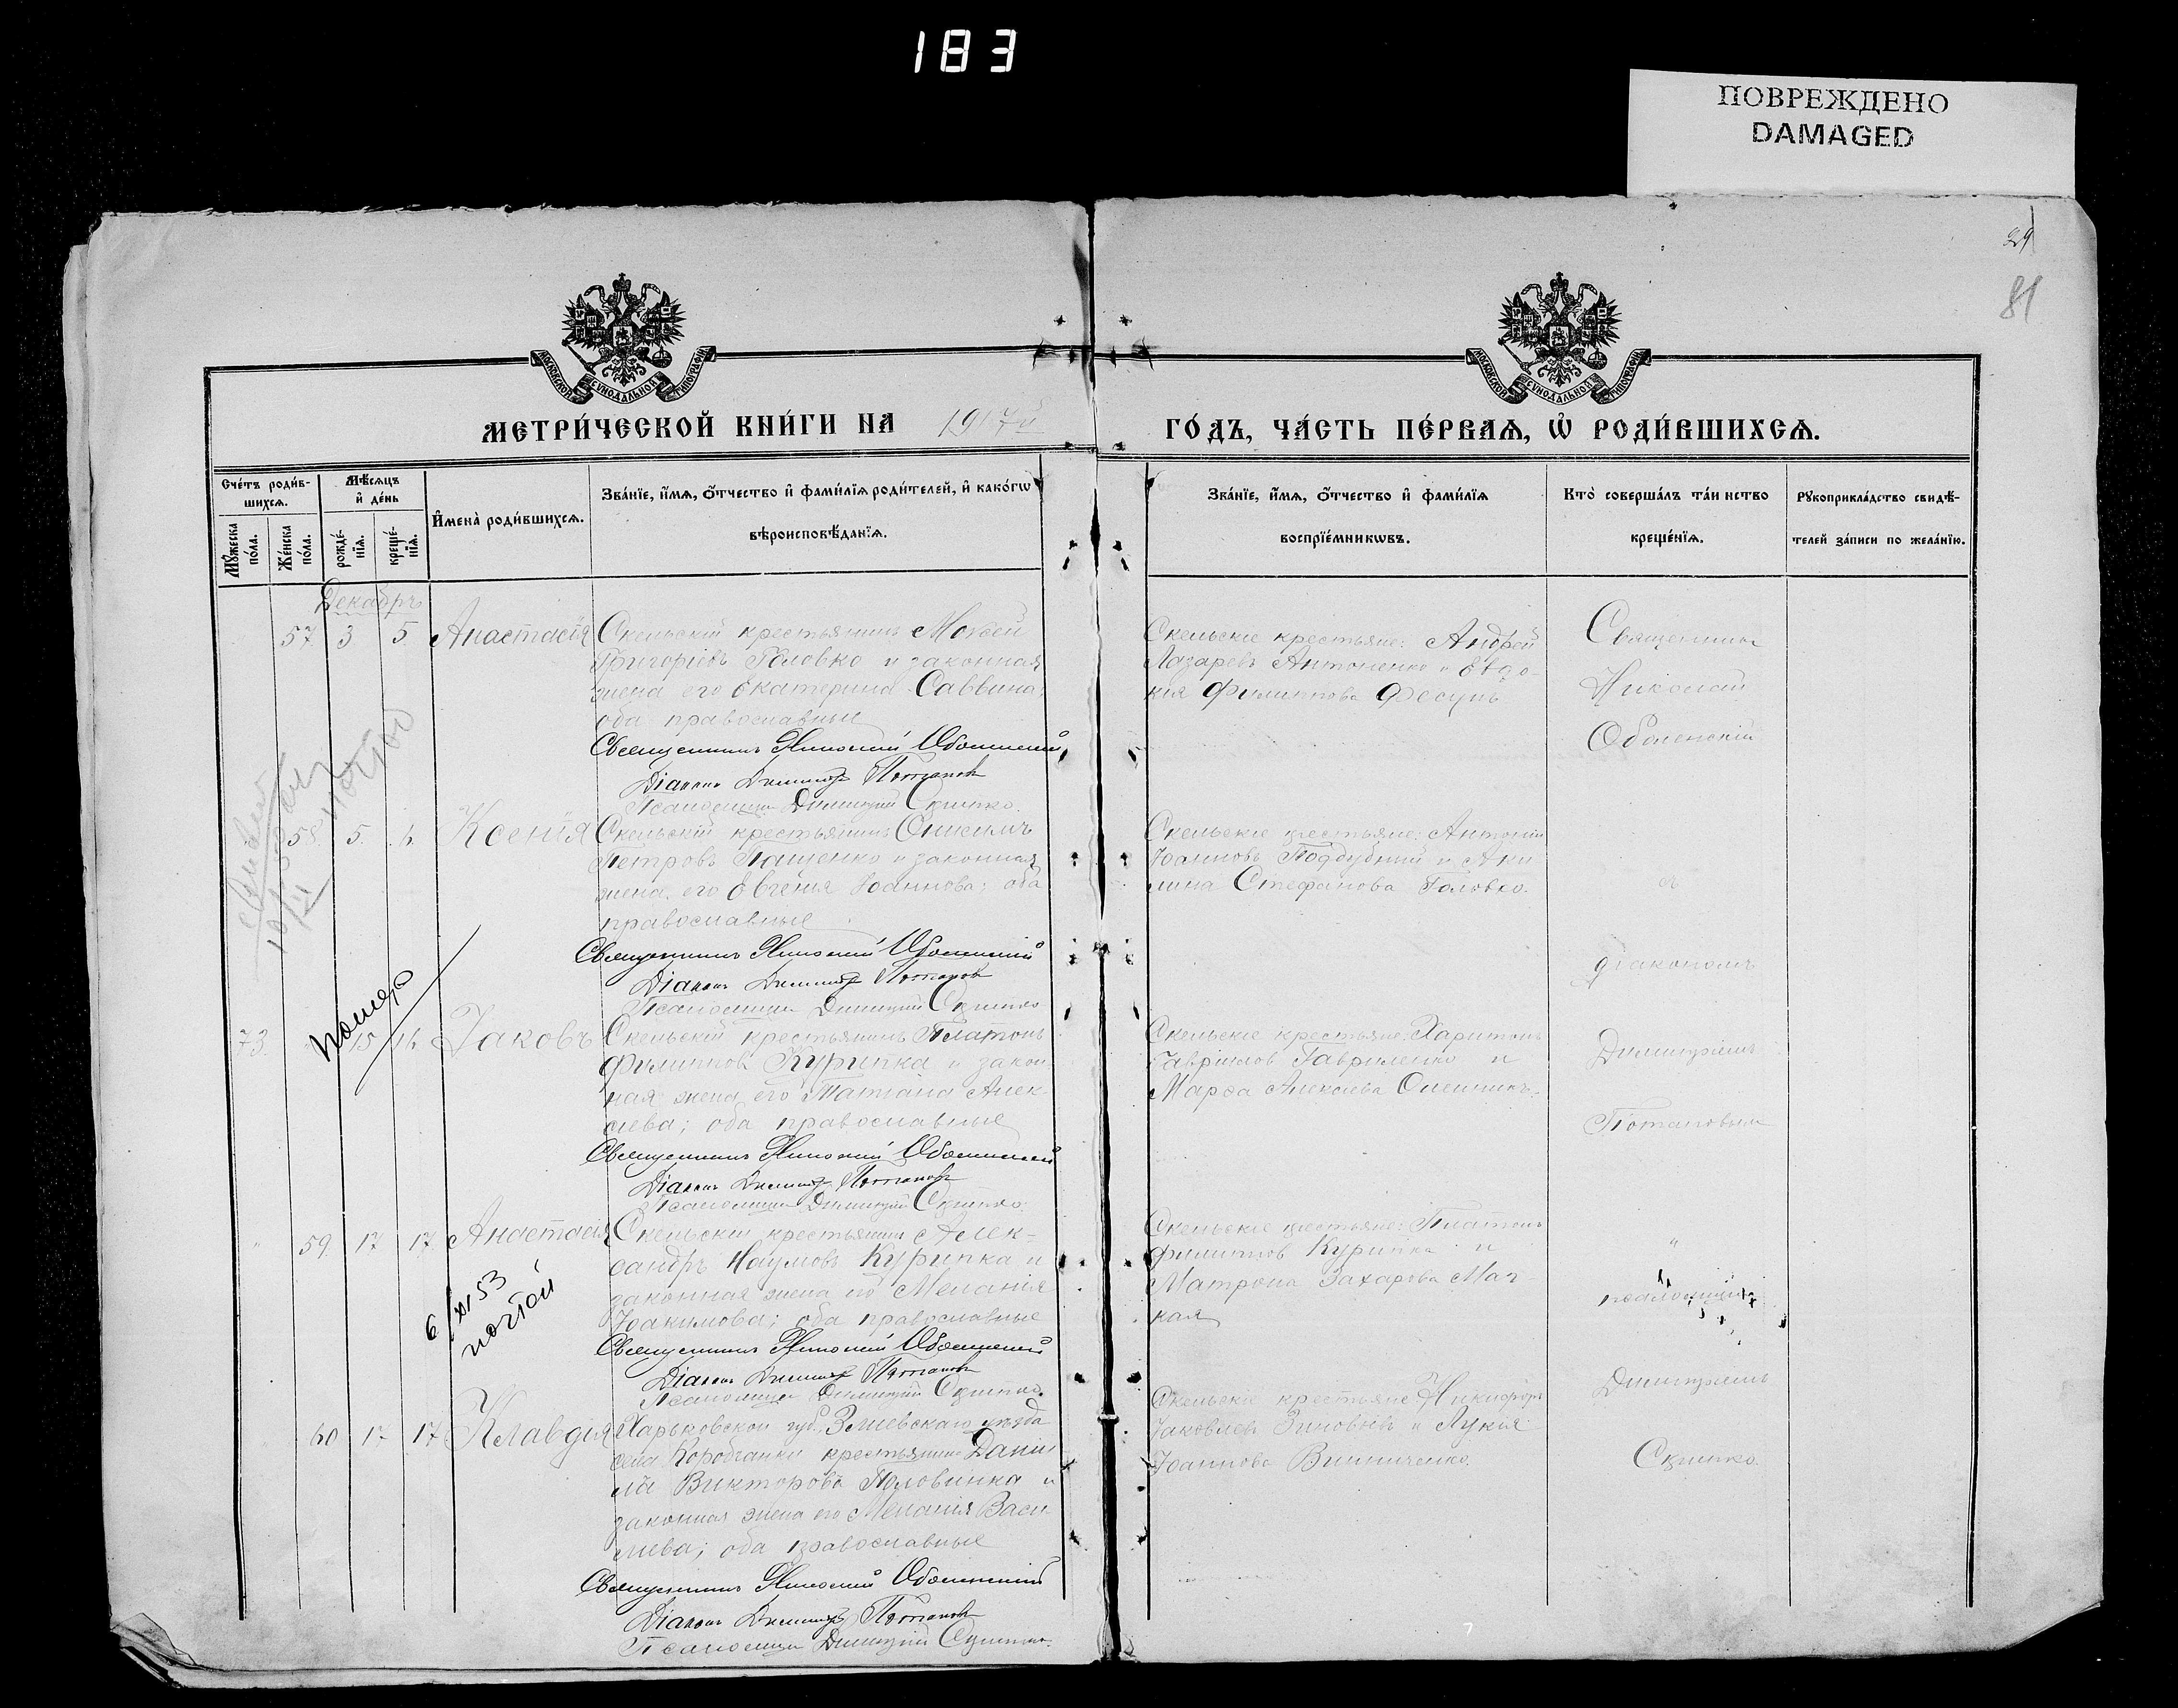 183
ПОВРЕЖДЕНО
DAMAGED
81
МОСКОВСКОЙ СѴНОДАЛЬНОЙ ТИПОГРАФІИ
МОСКОВСКОЙ СѴНОДАЛЬНОЙ ТИПОГРАФІИ
МЕТРИ́ЧЕСКОЙ КНИ́ГИ НА 1917й
ГО́ДЪ, ЧА́СТЬ ПЕ́РВАѦ, Ѡ҆ РОДИ́ВШИХСѦ.
Сче́тъ роди́в-
шихсѧ.
Мꙋ́жеска по́ла.
Же́нска по́ла.
Мѣ́сѧцъ
и҆ де́нь
рожде́-
нїѧ.
креще́-
нїѧ.
И҆мена̀ роди́вшихсѧ.
Зва́нїе, и҆́мѧ, ѻ҆́тчество и҆ фами́лїѧ роди́телей, и҆ како́гѡ
вѣроисповѣ́данїѧ.
Зва́нїе, и҆́мѧ, ѻ҆́тчество и҆ фами́лїѧ
воспрїе́мникѡвъ.
Кто̀ соверша́лъ та́инство
креще́нїѧ.
Рꙋкоприкла́дство свидѣ́-
телей за́писи по жела́нїю.
Декабрь
57. 3. 5. Анастасія
Скельскій крестьянинъ Моѵсей
Григоріевъ Головко и законная
жена его Екатерина Саввина;
оба православные
Священникъ Николай Оболенскій
Діаконъ Димитрій Потаповъ
Псаломщикъ Димитрій Скрипко.
Скельскіе крестьяне: Андрей
Лазаревъ Антоненко и Евдо-
кія Филиппова Фесунь
Священникъ
Николай
Оболенскій
58. 5. 6. Ксенія
Скельскій крестьянинъ Онисимъ
Петровъ Пащенко и законная
жена его Евгенія Іоаннова; оба
православные
Священникъ Николай Оболенскій
Діаконъ Димитрій Потаповъ
Псаломщикъ Димитрій Скрипко
Скельскіе крестьяне: Антоній
Іоанновъ Поддубный и Аки
лина Стефанова Головко.
съ
діакономъ
Димитріемъ
Потаповымъ
73. 15 16 Іаковъ
Скельскій крестьянинъ Платонъ
Филипповъ Курипка и закон
ная жена его Татіана Алек-
сіева; оба православные
Священникъ Николай Оболенскій
Діаконъ Димитрій Потаповъ
Псаломщикъ Димитрій Скрипко.
Скельскіе крестьяне: Харитонъ
Гавріиловъ Гавриленко и
Марѳа Алексіева
59. 17 17 Анастасія
Скельскій крестьянинъ Алек-
сандръ Наумовъ Курипка и
законная жена его Меланія
Іоакимова; оба православные
Священникъ Николай Оболенскій
Діаконъ Димитрій Потаповъ
Псаломщикъ Димитрій Скрипко.
Скельскіе крестьяне: Платонъ
Филипповъ Курипка и
Матрона Захарова Мат-
кая
и
псаломщикомъ
Димитріемъ
Скрипко.
6/XI 53
почтой
60 17 17 Клавдія
Харьковской губ. Зміевскаго уѣзда
села Коробчанки крестьянинъ Даніи
лъ Викторовъ Половинка и
законная жена его Меланія Васи
ліева; оба православные
Священникъ Николай Оболенскій
Діаконъ Димитрій Потаповъ
Псаломщикъ Димитрій Скрипко.
Скельскіе крестьяне: Никифоръ
Іаковлевъ Зиновьевъ и Лукія
Іоаннова Винниченко.